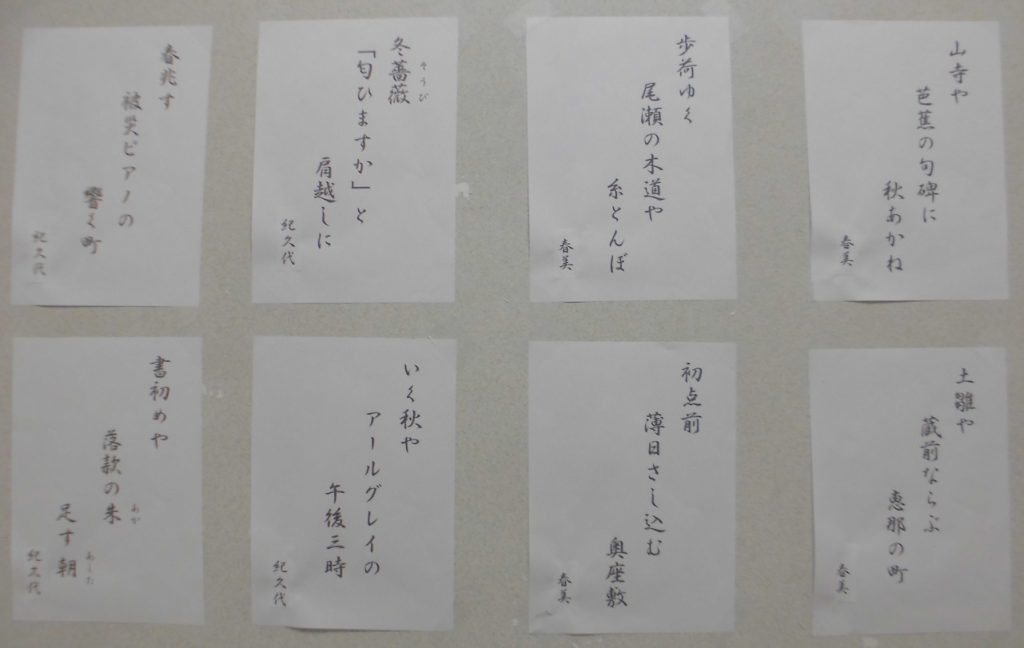 山寺や
芭蕉の句碑に
秋あかね
春美
歩荷ゆく
尾瀬の木道や
糸とんぼ
春美
冬薔薇
そうび
「匂ひますか」と
肩越しに
紀久代
春兆す
被災ピアノの
響く町
紀久代
土雛や
蔵前ならぶ
恵那の町
春美
初点前
薄日さし込む
奥座敷
春美
いく秋や
アールグレイの
午後三時
紀久代
書初めや
落款の朱
あか
足す朝
あした
紀久代